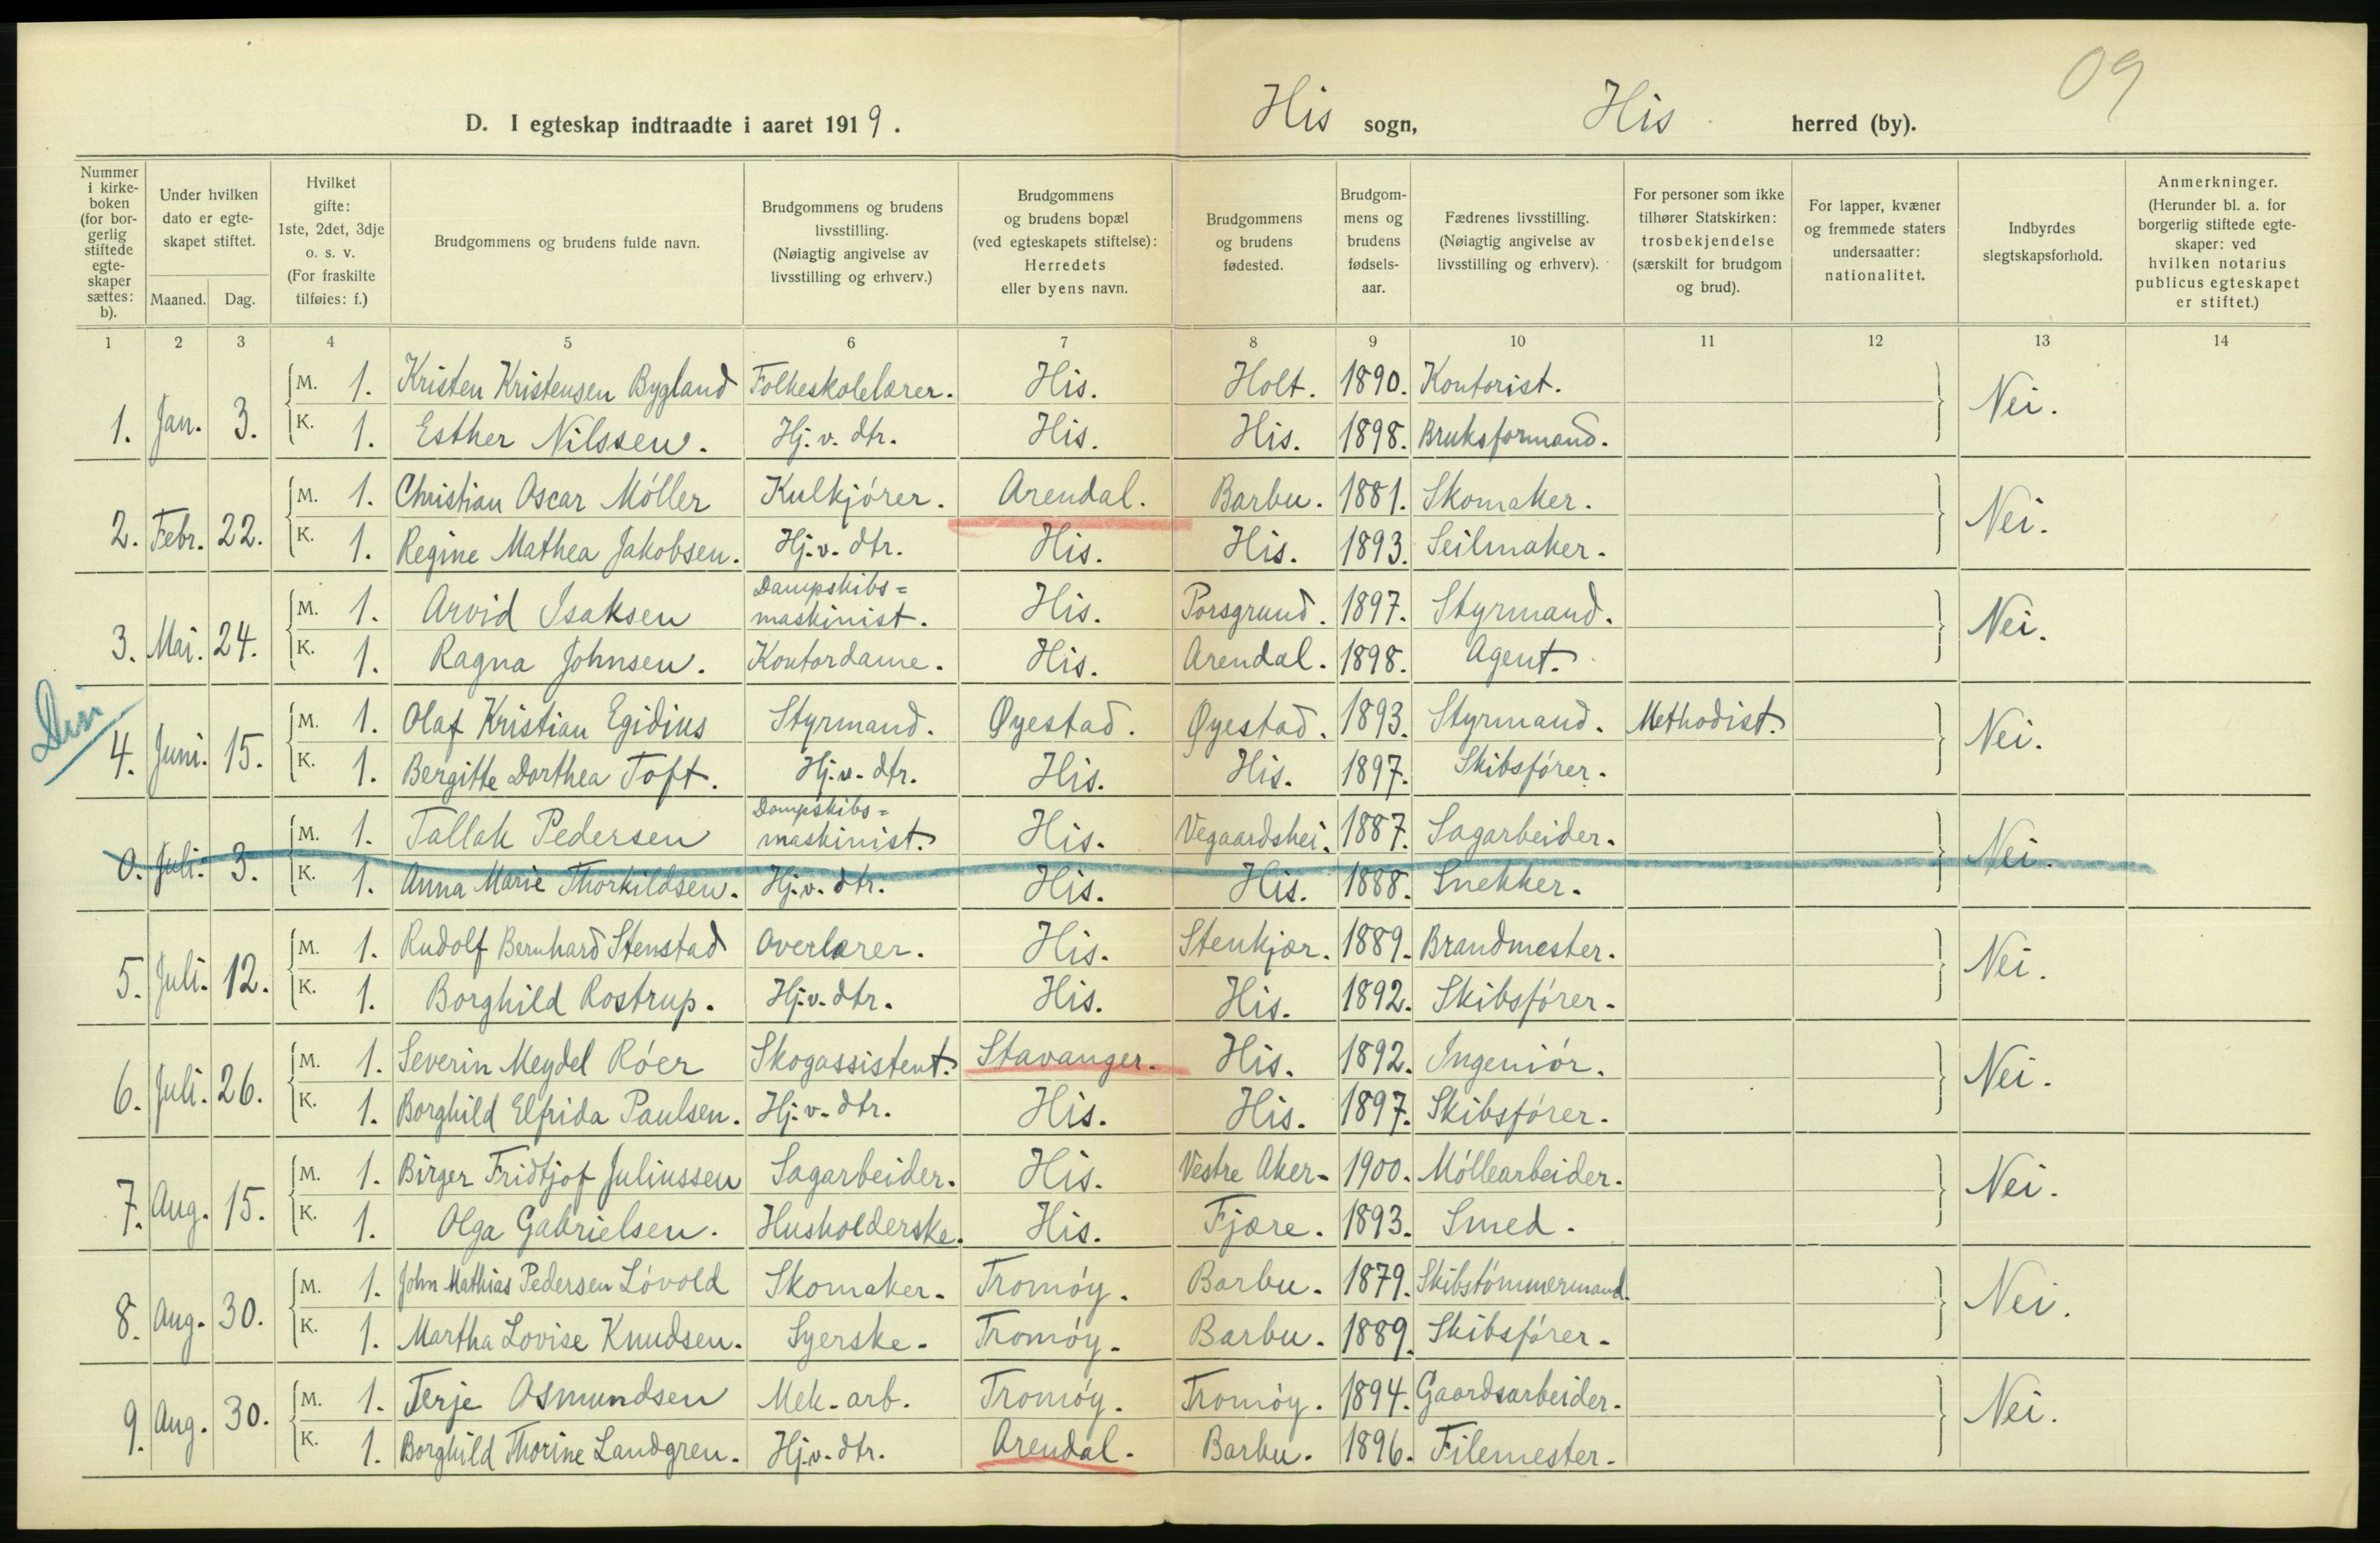 09
D. I egteskap indtraadte i aaret 1919. His sogn, His herred (by).
Nummer i kirkeboken (for borgerlig stiftede egteskaper sættes: b).
Under hvilken dato er egteskapet stiftet.
Maaned. Dag.
Hvilket gifte: 1ste, 2det, 3dje o. s. v. (For fraskilte tilføies: f.)
Brudgommens og brudens fulde navn.
Brudgommens og brudens livsstilling. (Nøiagtig angivelse av livsstilling og erhverv.)
Brudgommens og brudens bopæl (ved egteskapets stiftelse): Herredets eller byens navn.
Brudgommens og brudens fødested.
Brudgommens og brudens fødselsaar.
Fædrenes livsstilling. (Nøiagtig angivelse av livsstilling og erhverv).
For personer som ikke tilhører Statskirken: trosbekjendelse (særskilt for brudgom og brud).
For lapper, kvæner og fremmede staters undersaatter: nationalitet.
Indbyrdes slegtskapsforhold.
Anmerkninger. (Herunder bl. a. for borgerlig stiftede egteskaper: ved hvilken notarius publicus egteskapet er stiftet.)
1 2 3 4 5 6 7 8 9 10 11 12 13 14
M. 1. Kristen Kristensen Bygland Folkeskolelærer. His. Holt. 1890. Kontorist.
1. Jan. 3. K. 1. Esther Nilssen. Hj. v. dtr. His. His. 1898. Bruksformand. Nei.
M. 1. Christian Oscar Móller Kulkjórer. Arendal. Barbu. 1881. Skomaker.
2. Febr. 22. K. 1. Regine Mathea Jakobsen. Hj. v. dtr. His. His. 1893. Seilmaker. Nei.
M. 1. Arvid Isaksen Dampskibs=maskinist. His. Porsgrund. 1897. Styrmand.
3. Mai. 24. K. 1. Ragna Johnsen. Kontordame. His. Arendal. 1898. Agent. Nei.
M. 1. Olaf Kristian Egidius Styrmand. Øyestad. Øyestad. 1893. Styrmand. Methodist.
4. Juni. 15. K. 1. Bergitte Dorthea Toft. Hj. v. dtr. His. His. 1897. Skibsfórer. Nei.
M. 1. Tallak Pedersen Dampskibs=maskinist. His. Vegaardshei. 1887. Sagarbeider.
0. Juli. 3. K. 1. Anna Marie Thorkildsen. Hj. v. dtr. His. His. 1888. Snekker. Nei.
M. 1. Rudolf Bernhard Stenstad Overlærer. His. Stenkjær. 1889. Brandmester.
5. Juli. 12. K. 1. Borghild Rostrup. Hj. v. dtr. His. His. 1892. Skibsfórer. Nei.
M. 1. Severin Meydel Róer Skogassistent. Stavanger. His. 1892. Ingeniór.
6. Juli. 26. K. 1. Borghild Elfrida Paulsen. Hj. v. dtr. His. His. 1897. Skibsfórer. Nei.
M. 1. Birger Fridtjof Juliussen Sagarbeider. His. Vestre Aker. 1900. Móllearbeider.
7. Aug. 15. K. 1. Olga Gabrielsen. Husholderske. His. Fjære. 1893. Smed. Nei.
M. 1. John Mathias Pedersen Lóvold Skomaker. Tromóy. Barbu. 1879. Skibstómmermand.
8. Aug. 30. K. 1. Martha Lovise Knudsen. Syerske. Tromóy. Barbu. 1889. Skibsfórer. Nei.
M. 1. Terje Osmundsen Mek. arb. Tromóy. Tromóy. 1894. Gaardsarbeider.
9. Aug. 30. K. 1. Borghild Thorine Landgren. Hj. v. dtr. Arendal. Barbu. 1896. Filemester. Nei.